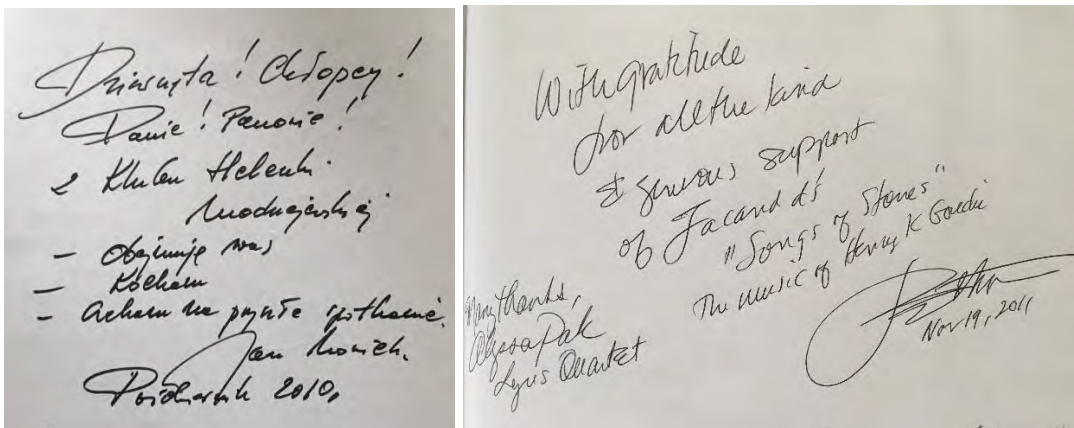 Dziewczęta! Chłopcy!
Panie! Panowie!
z Klubu Helenki
Modrzejewskiej
– Obejmuję was
– Kocham
– Czekam na przyszłe spotkanie.
Jan Nowicki.
Październik 2010,
With gratitude
for all the kind
& generous support
of Jacaranda's
"Songs of Stones"
The music of Henry K Gorecki
Nov 19, 2011
Many thanks,
Alyssa Park
Lyris Quartet